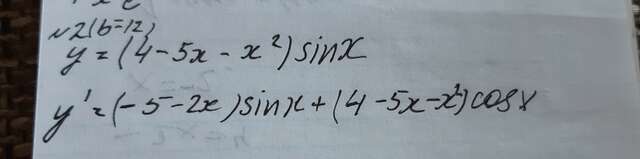 №2(б=12)
y = (4 - 5x - x²) sinx
y' = (-5 - 2x) sinx + (4 - 5x - x²) cosx